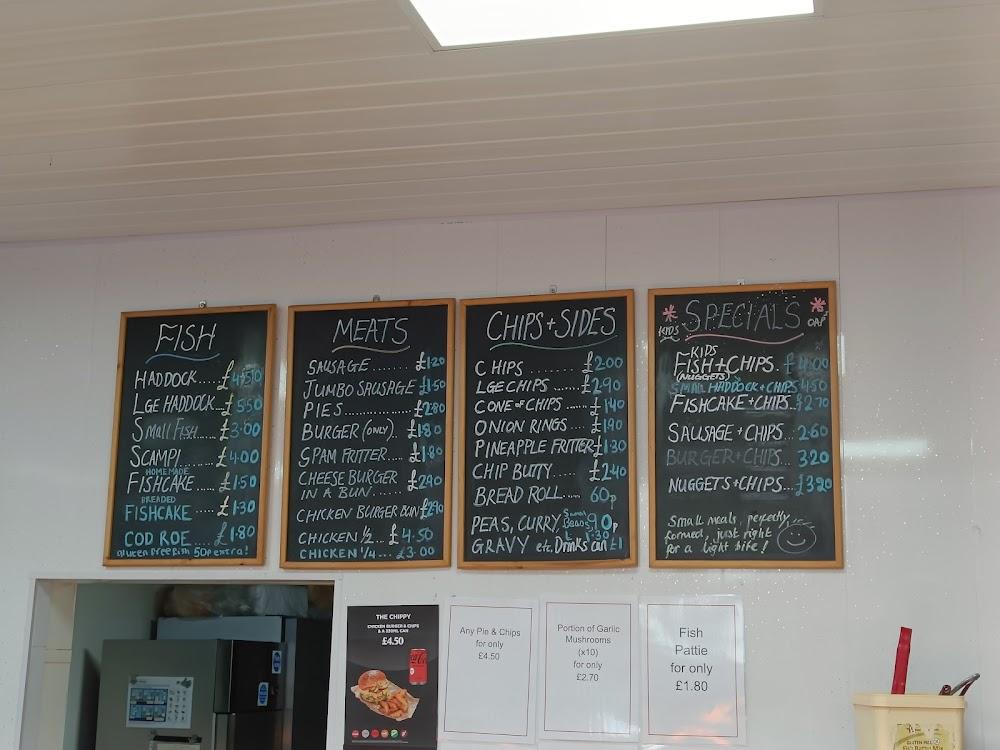 FISH
HADDOCK.... £4.50
LGE HADDOCK... £5.50
SMALL FISH.... £3.00
SCAMPI...... £4.00
HOMEMADE
FISHCAKE.... £1.50
BREADED
FISHCAKE.... £1.30
COD ROE.... £1.80
Gluten Free Fish 50p extra!
MEATS
SAUSAGE........ £1.20
JUMBO SAUSAGE £1.50
PIES............ £2.80
BURGER (ONLY).. £1.80
SPAM FRITTER.... £1.80
CHEESE BURGER
IN A BUN...... £2.90
CHICKEN BURGER BUN £2.90
CHICKEN 1/2... £4.50
CHICKEN 1/4... £3.00
CHIPS + SIDES
CHIPS......... £2.00
LGE CHIPS...... £2.90
CONE OF CHIPS...... £1.40
ONION RINGS.... £1.90
PINEAPPLE FRITTER £1.30
CHIP BUTTY.... £2.40
BREAD ROLL.... 60p
PEAS, CURRY, 90p
GRAVY etc. Drinks can £1
KIDS SPECIALS OAP's
KIDS
FISH + CHIPS. £4.00
(NUGGETS)
SMALL HADDOCK + CHIPS 4.50
FISHCAKE + CHIPS.. £2.70
SAUSAGE + CHIPS... 2.60
BURGER + CHIPS... 3.20
NUGGETS + CHIPS... £3.20
Small meals, perfectly
formed, just right
for a light bite!
THE CHIPPY
CHICKEN BURGER & CHIPS
& A 330ML CAN
£4.50
Any Pie & Chips
for only
£4.50
Portion of Garlic
Mushrooms
(x10)
for only
£2.70
Fish
Pattie
for only
£1.80